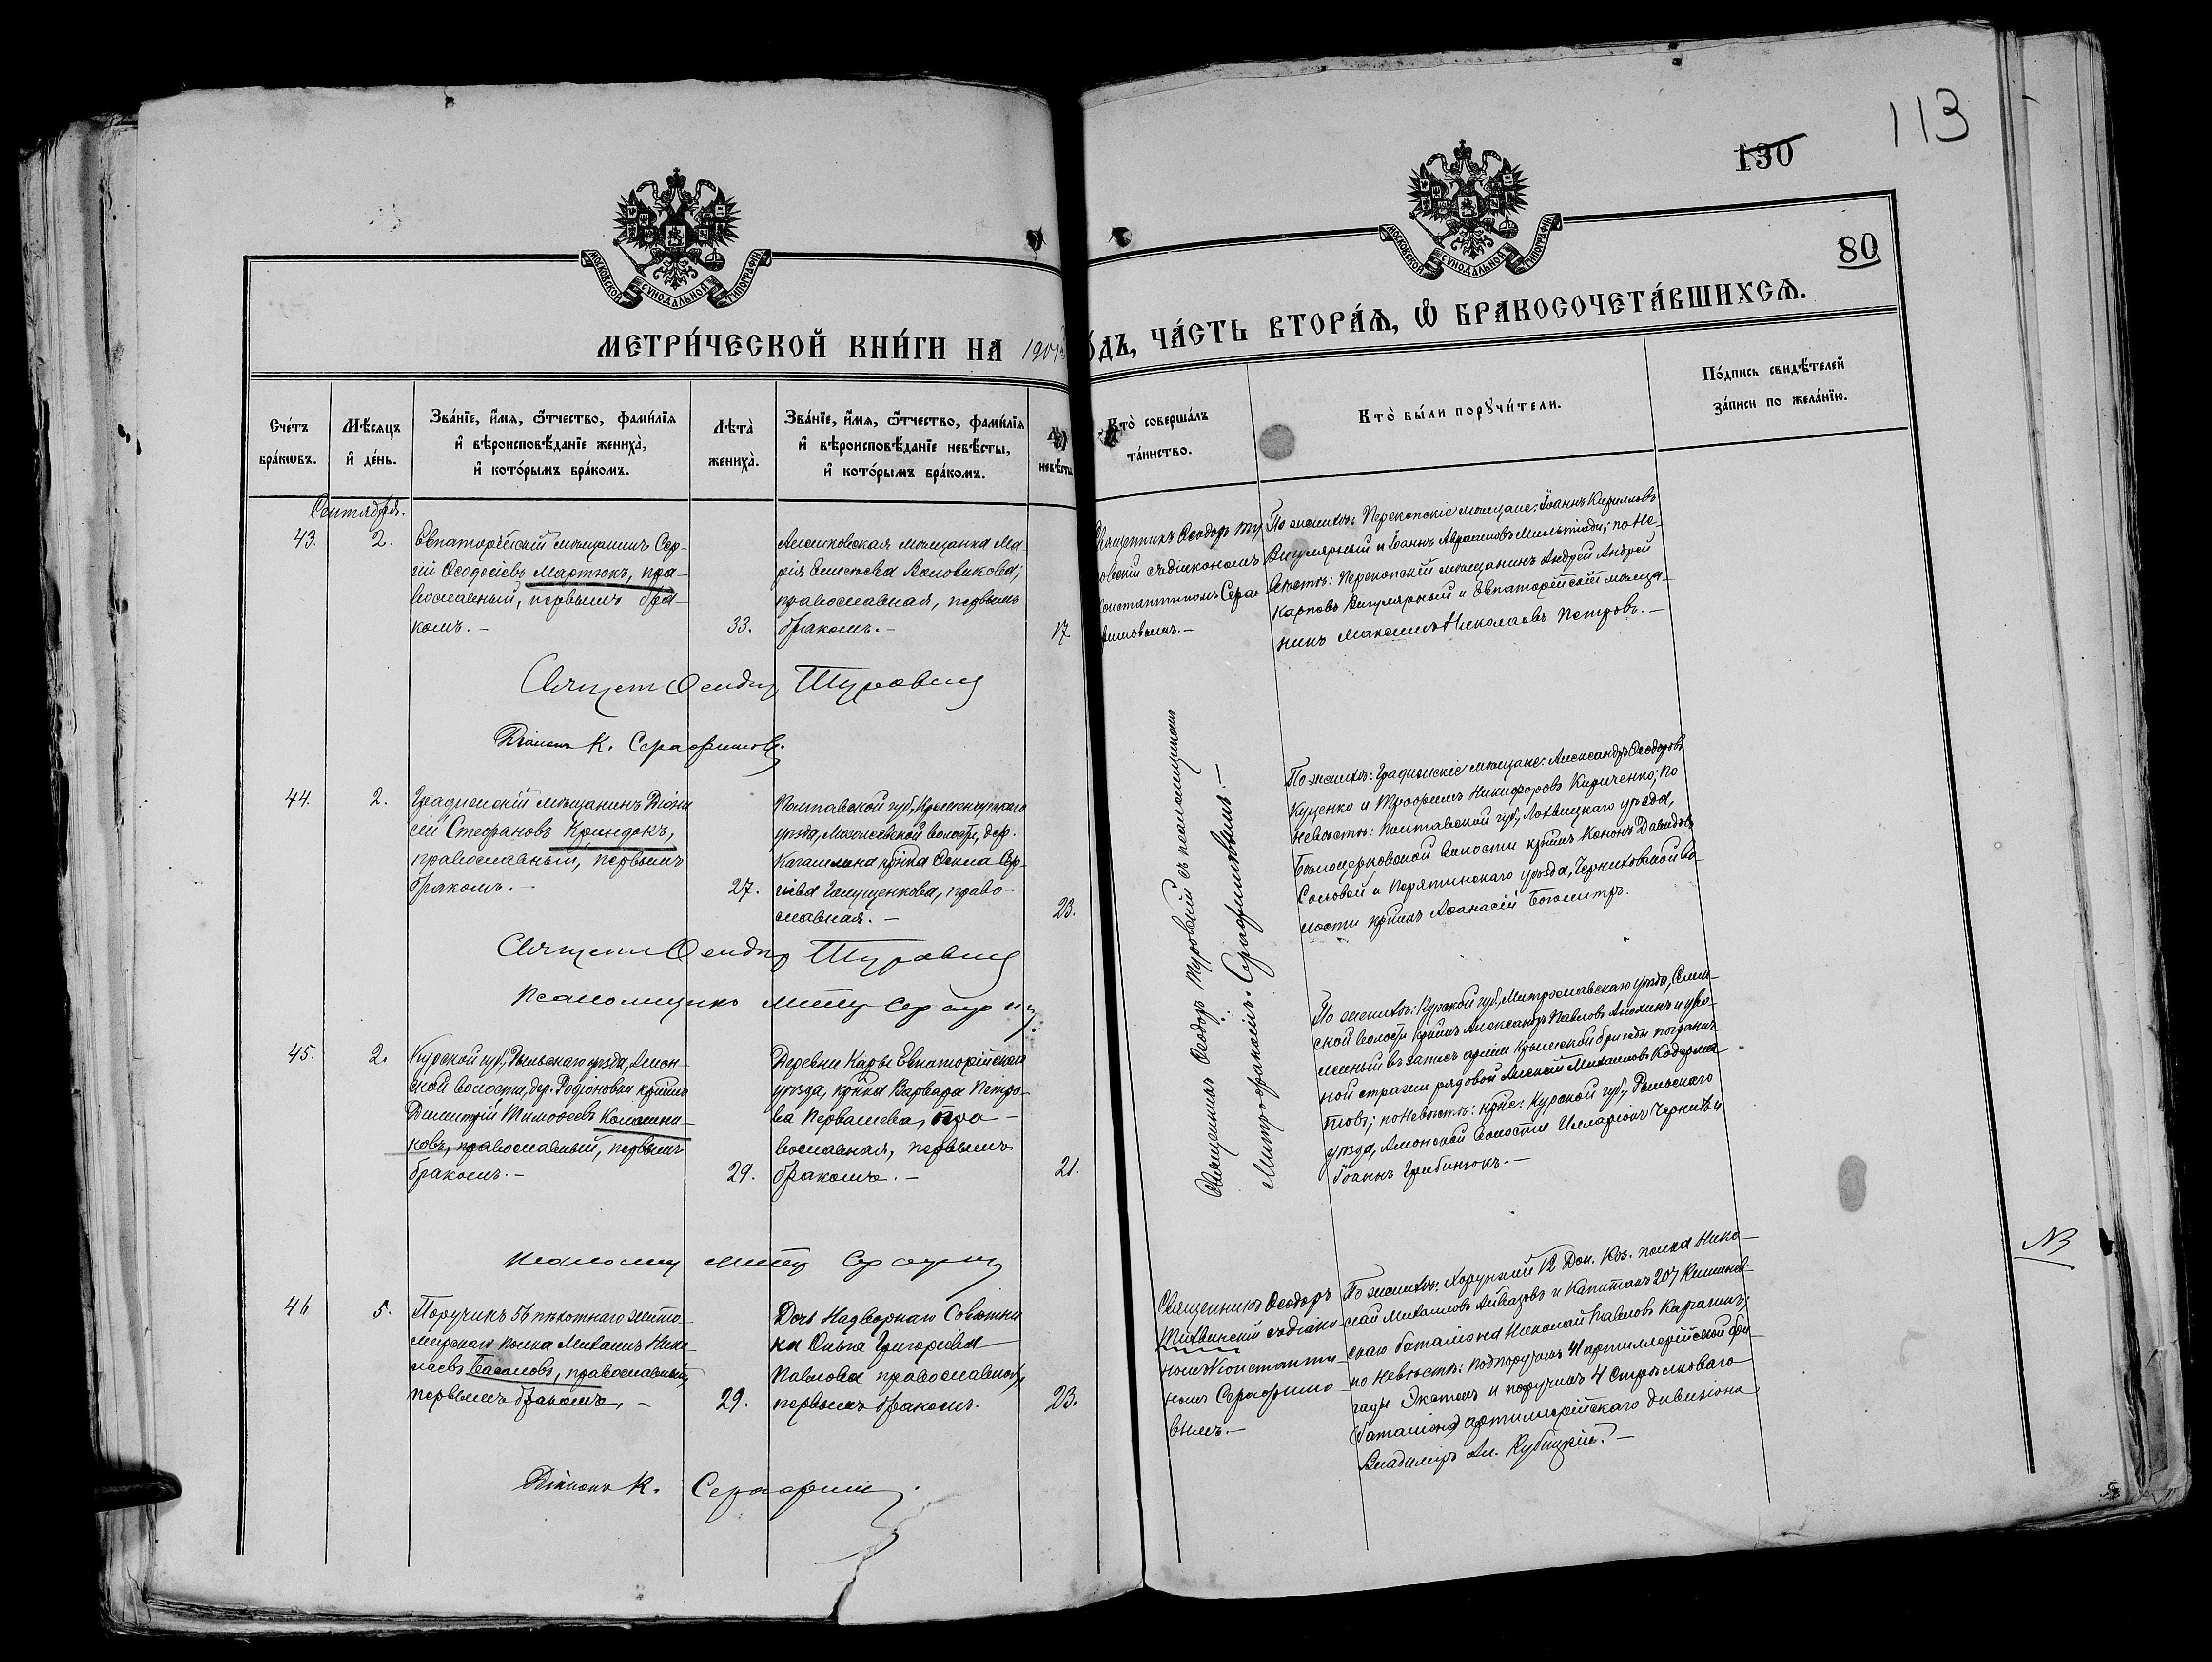 113
130
80
МОСКОВСКОЙ СУНОДАЛЬНОЙ ТИПОГРАФІИ
МОСКОВСКОЙ СУНОДАЛЬНОЙ ТИПОГРАФІИ
МЕТРИ́ЧЕСКОЙ КНИ́ГИ НА 1901
ЧА́СТЬ ВТОРА́Ѧ, Ѡ҆ БРАКОСОЧЕТА́ВШИХСѦ.
Сче́тъ бра́кѡвъ.
Мѣ́сяцъ и҆ де́нь.
Зва́нїе, и҆́мѧ, ѻ҆́тчество, фамѝлїѧ и҆ вѣроисповѣ́данїе жениха̀, и҆ кото́рымъ бра́комъ.
Лѣта̀ жениха̀.
Зва́нїе, и҆́мѧ, ѻ҆́тчество, фамѝлїѧ и҆ вѣроисповѣ́данїе невѣ́сты, и҆ кото́рымъ бра́комъ.
невѣ́сты
Кто̀ соверша́лъ та́инство.
Кто̀ бы́ли порꙋчи́тели.
По́дпись свидѣ́телей за́писи по жела́нїю.
Сентября.
43.
2.
Евпаторійскій мѣщанинъ Сер-
гій Ѳеодосіевъ Мартюкъ, пра-
вославный, первымъ бра-
комъ. –
33.
Алешковская мѣщанка Ма-
рія Елисеева Воловикова;
православная, первымъ
бракомъ. –
17
Священникъ Ѳеодоръ Ту
ровскій съ діакономъ
Константиномъ Сера-
фимовымъ. –
По женихѣ: Перекопскіе мѣщане: Іоаннъ Кирилловъ
Вигулярный и Іоаннъ Аврамовъ Мильтіади; по не-
вѣстѣ: Перекопскій мѣщанинъ Андрей Андрей
Карповъ Вигулярный и Евпаторійскій мѣща-
нинъ Максимъ Николаевъ Петровъ. –
Священ Ѳеодоръ Туровскій
Діаконъ К. Серафимовъ.
44.
2.
Градижскій мѣщанинъ Діони
сій Стефановъ Криндокъ,
православный, первымъ
бракомъ. –
27.
Полтавской губ, Кременчугскаго
уѣзда, Мозолеевской волости, дер.
кр̃нка Ѳекла Сер-
гіева Галущенкова, право-
славная. –
23.
Священникъ Ѳеодоръ Туровскій съ псаломщикомъ
Митрофаномъ Серафимовымъ. –
По женихѣ: Градижскіе мѣщане: Александръ Ѳеодоровъ
Куценко и Трофимъ Никифоровъ Кириченко; по
невѣстѣ: Полтавской губ, Лохвицкаго уѣзда,
Бѣлоцерковской волости кр̃нинъ Кононъ Давидовъ
Соловей и Пирятинскаго уѣзда, Черниховской во-
лости кр̃нинъ Аѳанасій
Священ Ѳеодоръ Туровскій
Псаломщикъ Митр Серафим
45.
2.
Курской губ, Рыльскаго уѣзда, Амон-
ской волости, дер. Родіоновки кр̃нинъ
Димитрій Тимоѳеевъ Калашни-
ковъ, православный, первымъ
бракомъ. –
29.
Деревни Кары Евпаторійскаго
уѣзда, кр̃нка Варвара Петро-
ва Первашева, пра-
вославная, первымъ
бракомъ. –
21.
По женихѣ: Курской губ,
ской волости кр̃нинъ Александръ Павловъ Анохинъ и уво-
ленный въ запасъ арміи Крымской бригады погранич
ной стражи рядовой Алексѣй Михаиловъ
товъ; по невѣстѣ: кр̃не: Курской губ, Рыльскаго
уѣзда, Амонской волости Илларіонъ Чернивъ и
Іоаннъ Грибинюкъ. –
Псаломщ Митр Серафим
46
5.
Поручикъ 56 пѣхотнаго Жито-
мирскаго полка Михаилъ Нико-
лаевъ Басаловъ, православный,
первымъ бракомъ. –
29.
Дочь Надворнаго Совѣтни
ка Ольга Григоріева
Павлова православная,
первымъ бракомъ.
23.
Священникъ Ѳеодоръ
Тихвинскій съ діако-
номъ Константи-
номъ Серафимо-
вымъ. –
По женихѣ: Хорунжій 12 Дон. Каз. полка Нико-
лай Михаиловъ Айвазовъ и Капитанъ 207 Кишинев-
скаго баталіона Николай Павловъ Карагинъ;
по невѣстѣ: подпоручикъ 41 артиллерійской бри-
гады Экстемъ и поручикъ 4 Стрѣлковаго
баталіона артиллерійскаго дивизіона
Владиміръ Ал. Рубицкій. –
NB
Діаконъ К. Серафим